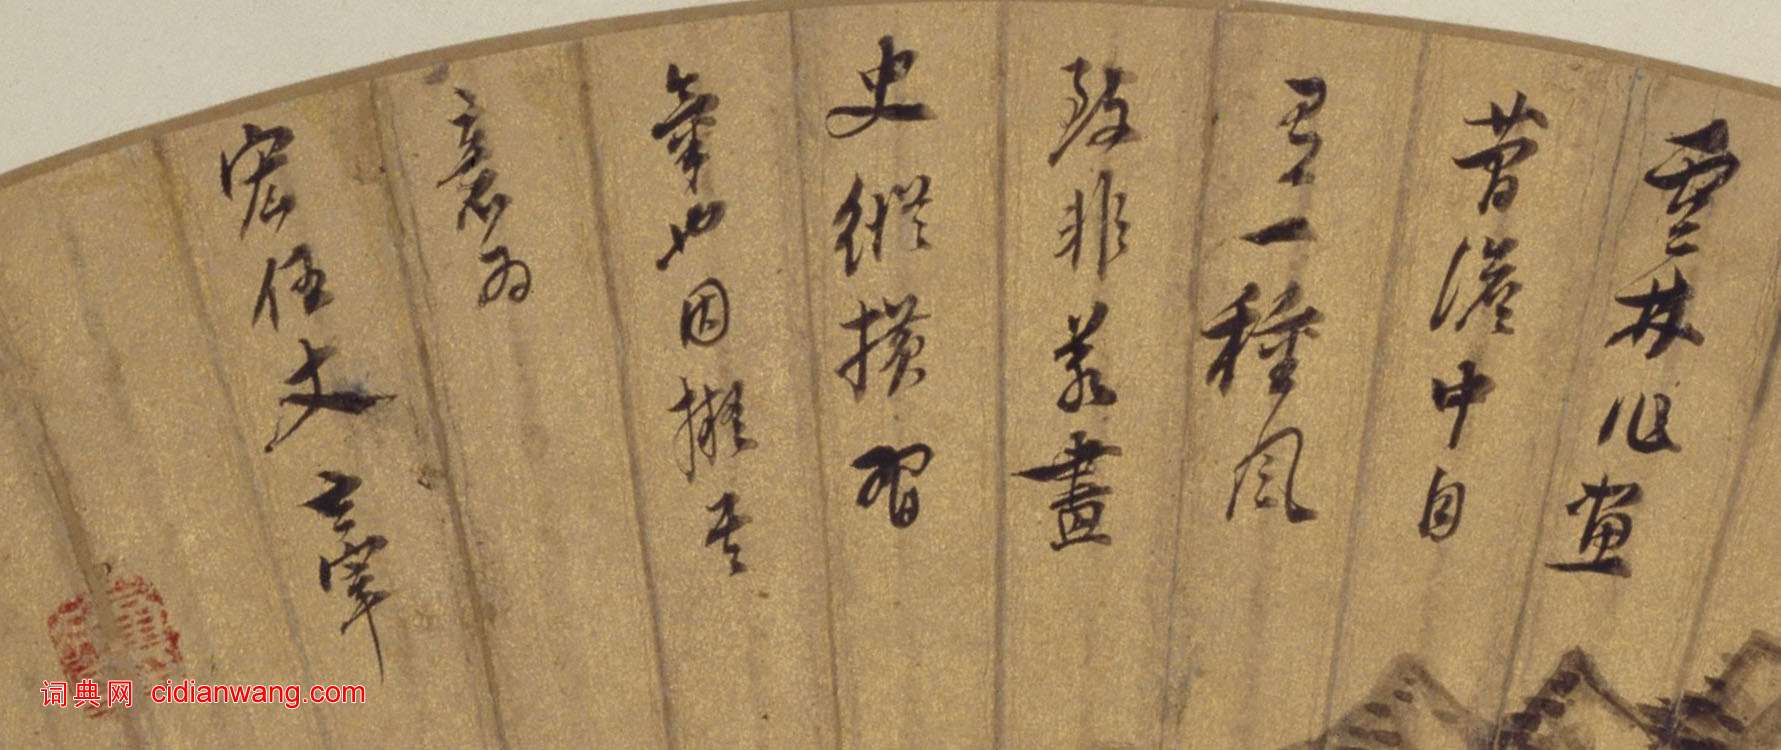 雲林作畫
昔澹中自
有一種風
致非若畫
史縱橫習
氣也因擬其
意為
宏伍丈 玄宰
词典网 cidianwang.com